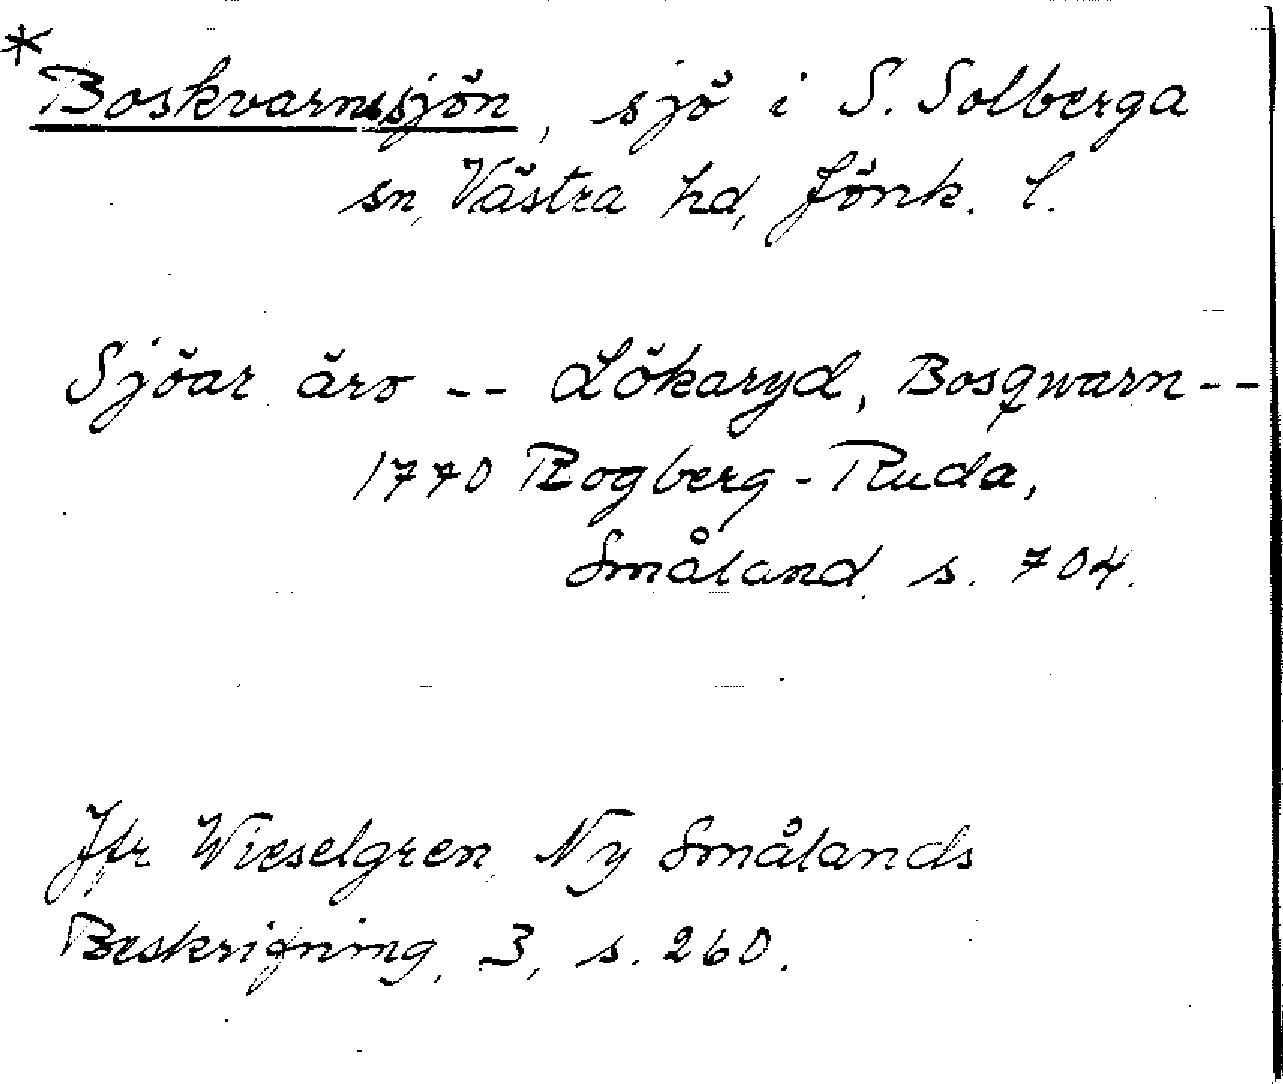 *
Boskvarnssjön, sjö i S. Solberga
sn, Västra hd, Jönk. l.
Sjöar äro -- Lökaryd, Bosqwarn--
1770 Rogberg-Ruda,
Småland s. 704.
Jfr Wieselgren, Ny Smålands
Beskrifning, 3, s. 260.